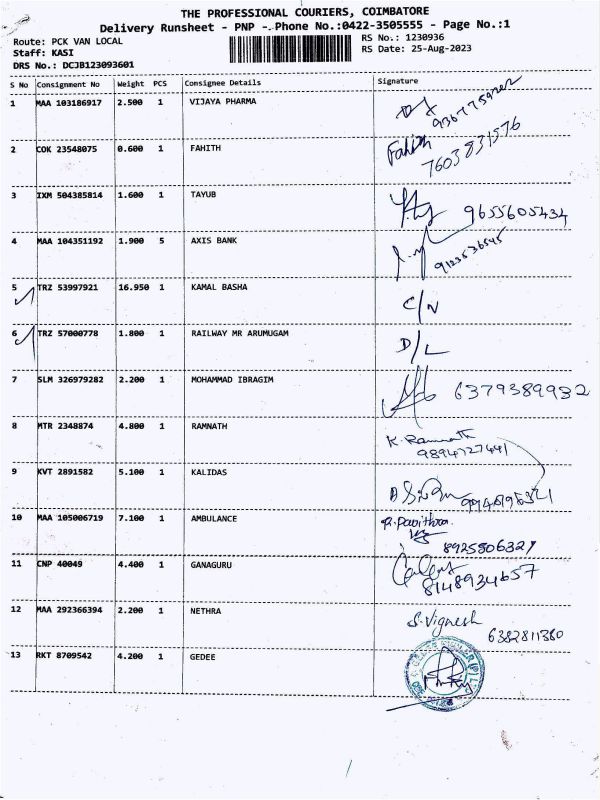 THE PROFESSIONAL COURIERS, COIMBATORE
Delivery Runsheet - PNP - Phone No.:0422-3505555 - Page No.:1
Route: PCK VAN LOCAL
Staff: KASI
DRS No.: DCJB123093601
RS No.: 1230936
RS Date: 25-Aug-2023
S No Consignment No Weight PCS Consignee Details Signature
1 MAA 103186917 2.500 1 VIJAYA PHARMA
2 COK 23548075 0.600 1 FAHITH Fahith
7603831576
3 IXM 504385814 1.600 1 TAYUB 9655605434
4 MAA 104351192 1.900 5 AXIS BANK 9123536545
5 TRZ 53997921 16.950 1 KAMAL BASHA C/N
6 TRZ 57000778 1.800 1 RAILWAY MR ARUMUGAM D/L
7 SLM 326979282 2.200 1 MOHAMMAD IBRAGIM 6379389932
8 MTR 2348874 4.800 1 RAMNATH K. Ramnath
9894727441
9 KVT 2891582 5.100 1 KALIDAS
10 MAA 105006719 7.100 1 AMBULANCE R. Pavithra
8925806327
11 CNP 40049 4.400 1 GANAGURU
8148934657
12 MAA 292366394 2.200 1 NETHRA S. Vignesh
6382811380
13 RKT 8709542 4.200 1 GEDEE